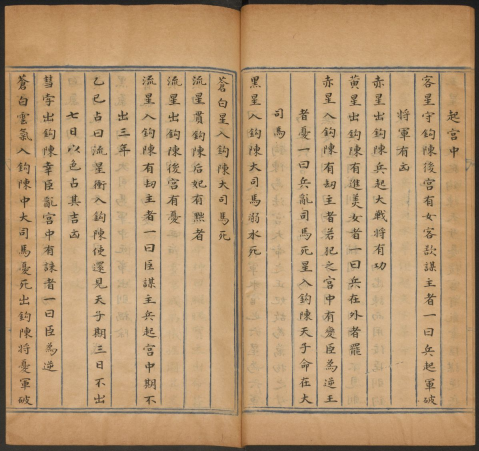 起宮中
客星守鈎陳後宮有女客欲謀主者一曰兵起軍破
將軍有凶
赤星出鈎陳兵起大戰將有功
黃星出鈎陳有進美女者一曰兵在外者罷
赤星入鈎陳有刼主者若犯之宮中有變臣為逆王
者憂一曰兵亂司馬死星入鈎陳天子命在大
司馬
黑星入鈎陳大司馬溺水死
蒼白星入鈎陳大司馬死
流星貫鈎陳后妃有黜者
流星出鈎陳後宮有憂
流星入鈎陳有刼主者一曰臣謀主兵起宮中期不
出三年
乙巳占曰流星衝入鈎陳使還見天子期三日不出
七日以色占其吉凶
彗孛出鈎陳幸臣亂宮中有讓者一曰臣為逆
蒼白雲氣入鈎陳中大司馬憂死出鈎陳將憂軍破